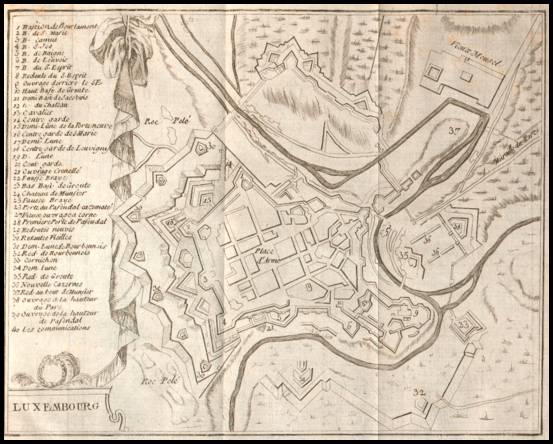 1 Bastion de Bourlamont
2 B. de S. Marie
3 B. Camus
4 B. S. Jost
5 B. de Baigne
6 B. de Louvois
7 B. du S. Esprit
8 Redoute du S. Esprit
9 Ouvrage derriere le S. E.
10 Haut Baſt. de Groute
11 Demi Baſt. de Jacobuis
12 B. du Chateau
13 Cavalier
14 Contre garde
15 Demi-Lune de la Porte neuve
16 Contre garde de S. Marie
17 Demi-Lune
18 Contre garde de Louvigni
19 D. Lune
20 Cont. garde
21 Ouvrage Crenellé
22 Fausse Braye
23 Bas Baſt. de Groute
24 Chateau de Munſter
25 Fausse Braye
26 Porte du Pafendal casematé
27 Vieux ouvrage a corne
28 Premiere Porte de Pafendal
29 Redoutes neuves
30 Redoutes Vieilles
31 Demi Lune de Bourbonnois
32 Red. de Bourbonnois
33 Cornichon
34 Dem. Lune
35 Red. de Groute
36 Nouvelle Cazernes
37 Red. au bout de Munſter
38 Ouvrage de la hauteur
du Parc
39 Ouvrage de la hauteur
de Pafendal
40 Les communications
Vieux Mansel
Roc Pelé
37
30
14
Place
d'Armes
35
36
36
9
23
21
Roc Pelé
32
LUXEMBOURG